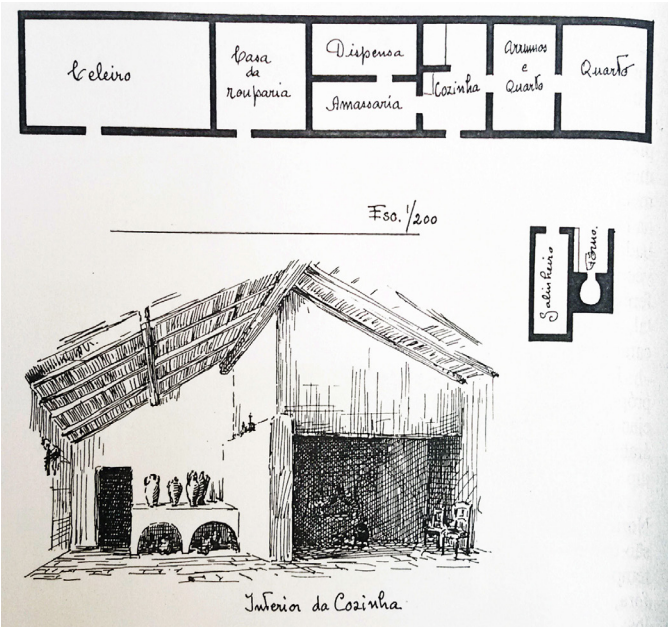 Celeiro
Casa
da
rouparia
Dispensa
Amassaria
Cozinha
Arrumos
e
Quarto
Quarto
Esc. 1/200
Galinheiro
Forno.
Interior da Cozinha